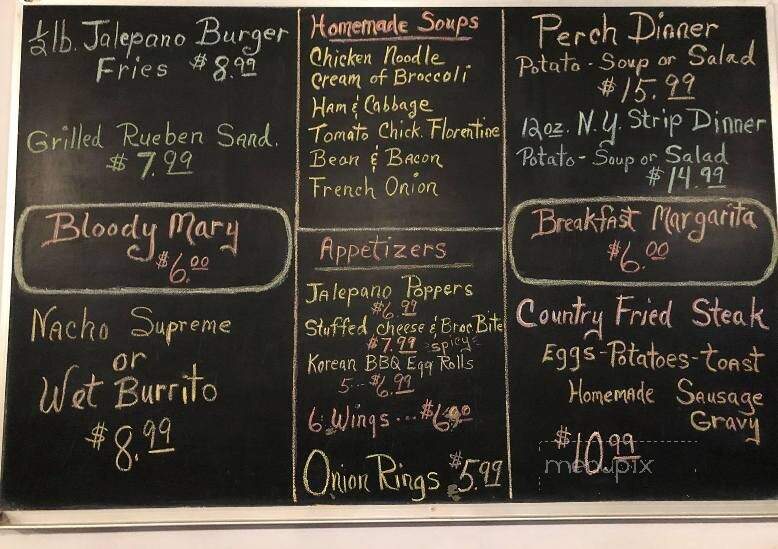 ½ lb. Jalepano Burger
Fries $8.99
Grilled Rueben Sand.
$7.99
Bloody Mary
$6.00
Nacho Supreme
or
Wet Burrito
$8.99
Homemade Soups
Chicken Noodle
Cream of Broccoli
Ham & Cabbage
Tomato Chick. Florentine
Bean & Bacon
French Onion
Appetizers
Jalepano Poppers
$6.99
Stuffed cheese & Broc Bite
$7.99 spicy
Korean BBQ Egg Rolls
5... $6.99
6 Wings ... $6.90
Onion Rings $5.99
Perch Dinner
Potato - Soup or Salad
$15.99
12oz. N.Y. Strip Dinner
Potato - Soup or Salad
$14.99
Breakfast Margarita
$6.00
Country Fried Steak
Eggs - Potatoes - toast
Homemade Sausage
Gravy
$10.99
menupix